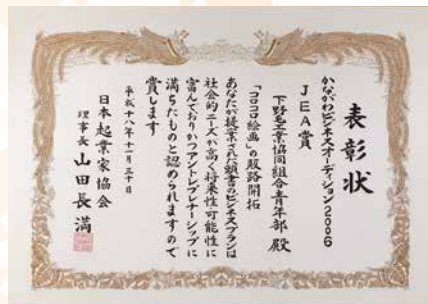 表彰状
かながわビジネスオーディション2006
JEA賞
下野毛工業協同組合青年部 殿
「コロコロ絵画」の販路開拓
あなたが提案された頭書のビジネスプランは
社会的ニーズが高く将来性・可能性に
富んでおりかつアントレプレナーシップに
満ちたものと認められますので
賞します
平成十八年十一月三十日
日本起業家協会
理事長 山田長満